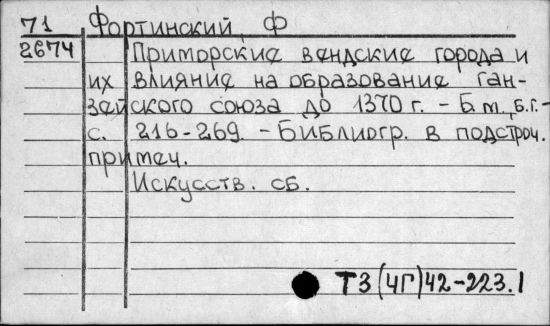 71 Фортинский, Ф
2674 Приморские вендские города и
их влияние на образование Ган-
зейского союза до 1370 г. - Б.м., Б.г. -
с. 216-269. - Библиогр. в подстроч.
примеч.
Искусств. сб.
Т3(4Г)42-223.1